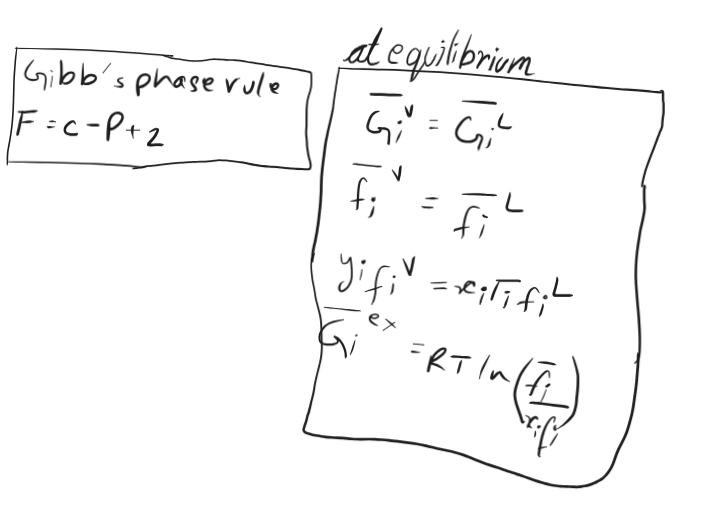 Gibb's phase rule
F = c - P + 2
at equilibrium
G̅i^V = G̅i^L
f̅i^V = f̅i^L
yi fi^V = xi Γi fi^L
G̅i^ex = RT ln (f̅i / xi fi)